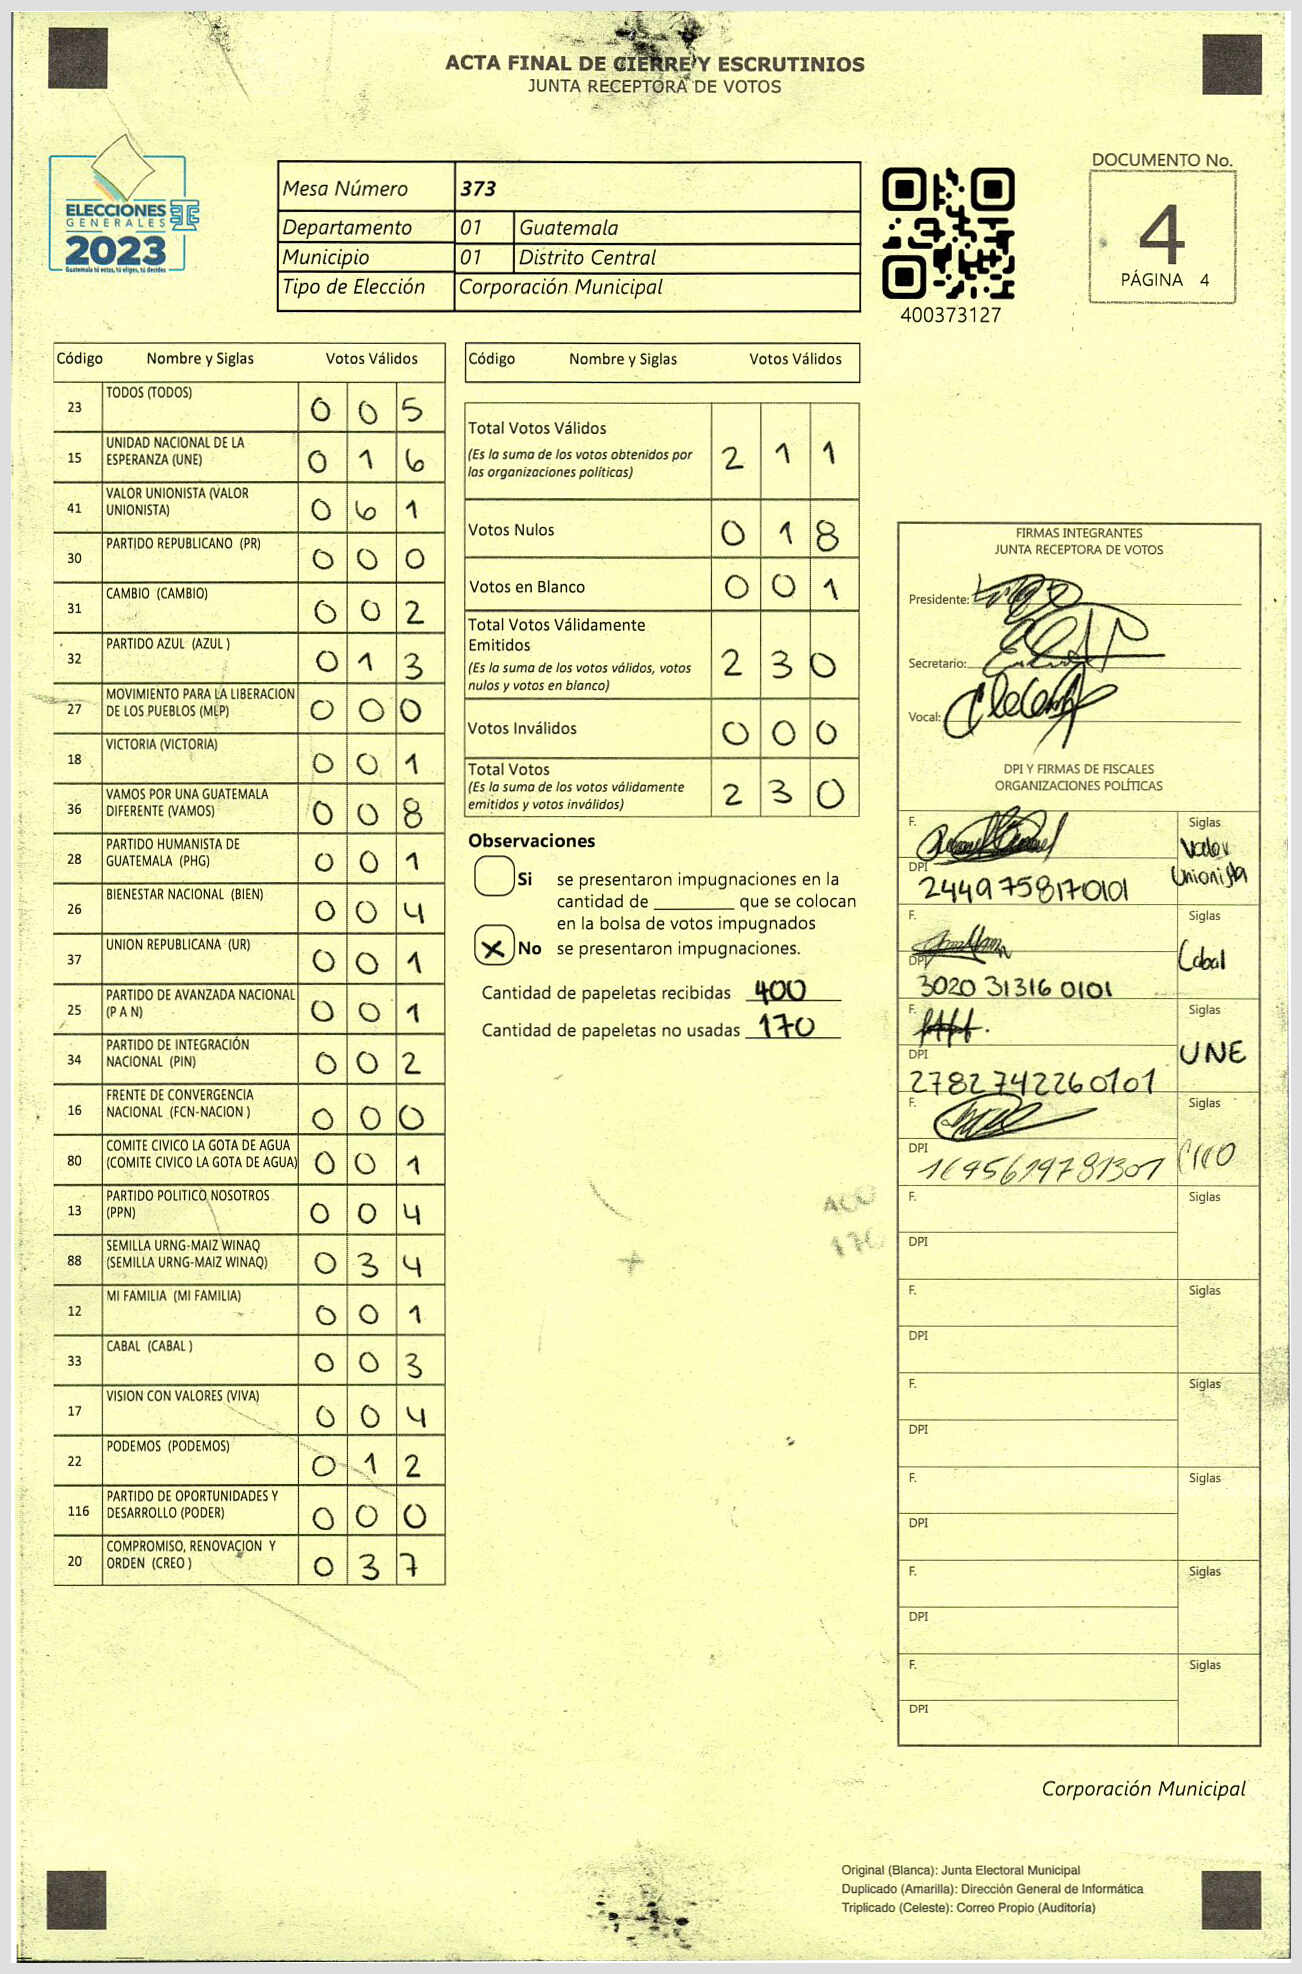 ACTA FINAL DE CIERRE Y ESCRUTINIOS
JUNTA RECEPTORA DE VOTOS
ELECCIONES
GENERALES
2023
Guatemala tú votas, tú eliges, tú decides
Mesa Número 373
Departamento 01 Guatemala
Municipio 01 Distrito Central
Tipo de Elección Corporación Municipal
400373127
DOCUMENTO No.
4
PÁGINA 4
Código Nombre y Siglas Votos Válidos
23 TODOS (TODOS) 0 0 5
15 UNIDAD NACIONAL DE LA
ESPERANZA (UNE) 0 1 6
41 VALOR UNIONISTA (VALOR
UNIONISTA) 0 6 1
30 PARTIDO REPUBLICANO (PR) 0 0 0
31 CAMBIO (CAMBIO) 0 0 2
32 PARTIDO AZUL (AZUL ) 0 1 3
27 MOVIMIENTO PARA LA LIBERACION
DE LOS PUEBLOS (MLP) 0 0 0
18 VICTORIA (VICTORIA) 0 0 1
36 VAMOS POR UNA GUATEMALA
DIFERENTE (VAMOS) 0 0 8
28 PARTIDO HUMANISTA DE
GUATEMALA (PHG) 0 0 1
26 BIENESTAR NACIONAL (BIEN) 0 0 4
37 UNION REPUBLICANA (UR) 0 0 1
25 PARTIDO DE AVANZADA NACIONAL
(P A N) 0 0 1
34 PARTIDO DE INTEGRACIÓN
NACIONAL (PIN) 0 0 2
16 FRENTE DE CONVERGENCIA
NACIONAL (FCN-NACION ) 0 0 0
80 COMITE CIVICO LA GOTA DE AGUA
(COMITE CIVICO LA GOTA DE AGUA) 0 0 1
13 PARTIDO POLITICO NOSOTROS
(PPN) 0 0 4
88 SEMILLA URNG-MAIZ WINAQ
(SEMILLA URNG-MAIZ WINAQ) 0 3 4
12 MI FAMILIA (MI FAMILIA) 0 0 1
33 CABAL (CABAL ) 0 0 3
17 VISION CON VALORES (VIVA) 0 0 4
22 PODEMOS (PODEMOS) 0 1 2
116 PARTIDO DE OPORTUNIDADES Y
DESARROLLO (PODER) 0 0 0
20 COMPROMISO, RENOVACION Y
ORDEN (CREO ) 0 3 7
Código Nombre y Siglas Votos Válidos
Total Votos Válidos
(Es la suma de los votos obtenidos por
las organizaciones políticas) 2 1 1
Votos Nulos 0 1 8
Votos en Blanco 0 0 1
Total Votos Válidamente
Emitidos
(Es la suma de los votos válidos, votos
nulos y votos en blanco) 2 3 0
Votos Inválidos 0 0 0
Total Votos
(Es la suma de los votos válidamente
emitidos y votos inválidos) 2 3 0
Observaciones
Si se presentaron impugnaciones en la
cantidad de ________ que se colocan
en la bolsa de votos impugnados
X No se presentaron impugnaciones.
Cantidad de papeletas recibidas 400
Cantidad de papeletas no usadas 170
400
170
FIRMAS INTEGRANTES
JUNTA RECEPTORA DE VOTOS
Presidente:
Secretario:
Vocal:
DPI Y FIRMAS DE FISCALES
ORGANIZACIONES POLÍTICAS
F. Siglas
Valor
Unionista
DPI
2449758170101
F. Siglas
Cabal
DPI
3020 31316 0101
F. Siglas
UNE
DPI
2782742260101
F. Siglas
DPI
F. Siglas
DPI
F. Siglas
DPI
F. Siglas
DPI
F. Siglas
DPI
F. Siglas
DPI
F. Siglas
DPI
Corporación Municipal
Original (Blanca): Junta Electoral Municipal
Duplicado (Amarilla): Dirección General de Informática
Triplicado (Celeste): Correo Propio (Auditoría)